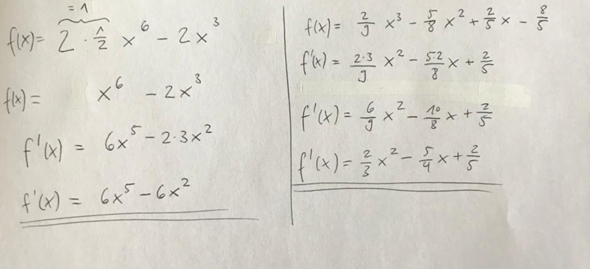 = 1
f(x) = 2 · 1/2 x^6 - 2x^3
f(x) = x^6 - 2x^3
f'(x) = 6x^5 - 2·3x^2
f'(x) = 6x^5 - 6x^2
f(x) = 2/9 x^3 - 5/8 x^2 + 2/5 x - 8/5
f'(x) = 2·3/9 x^2 - 5·2/8 x + 2/5
f'(x) = 6/9 x^2 - 10/8 x + 2/5
f'(x) = 2/3 x^2 - 5/4 x + 2/5